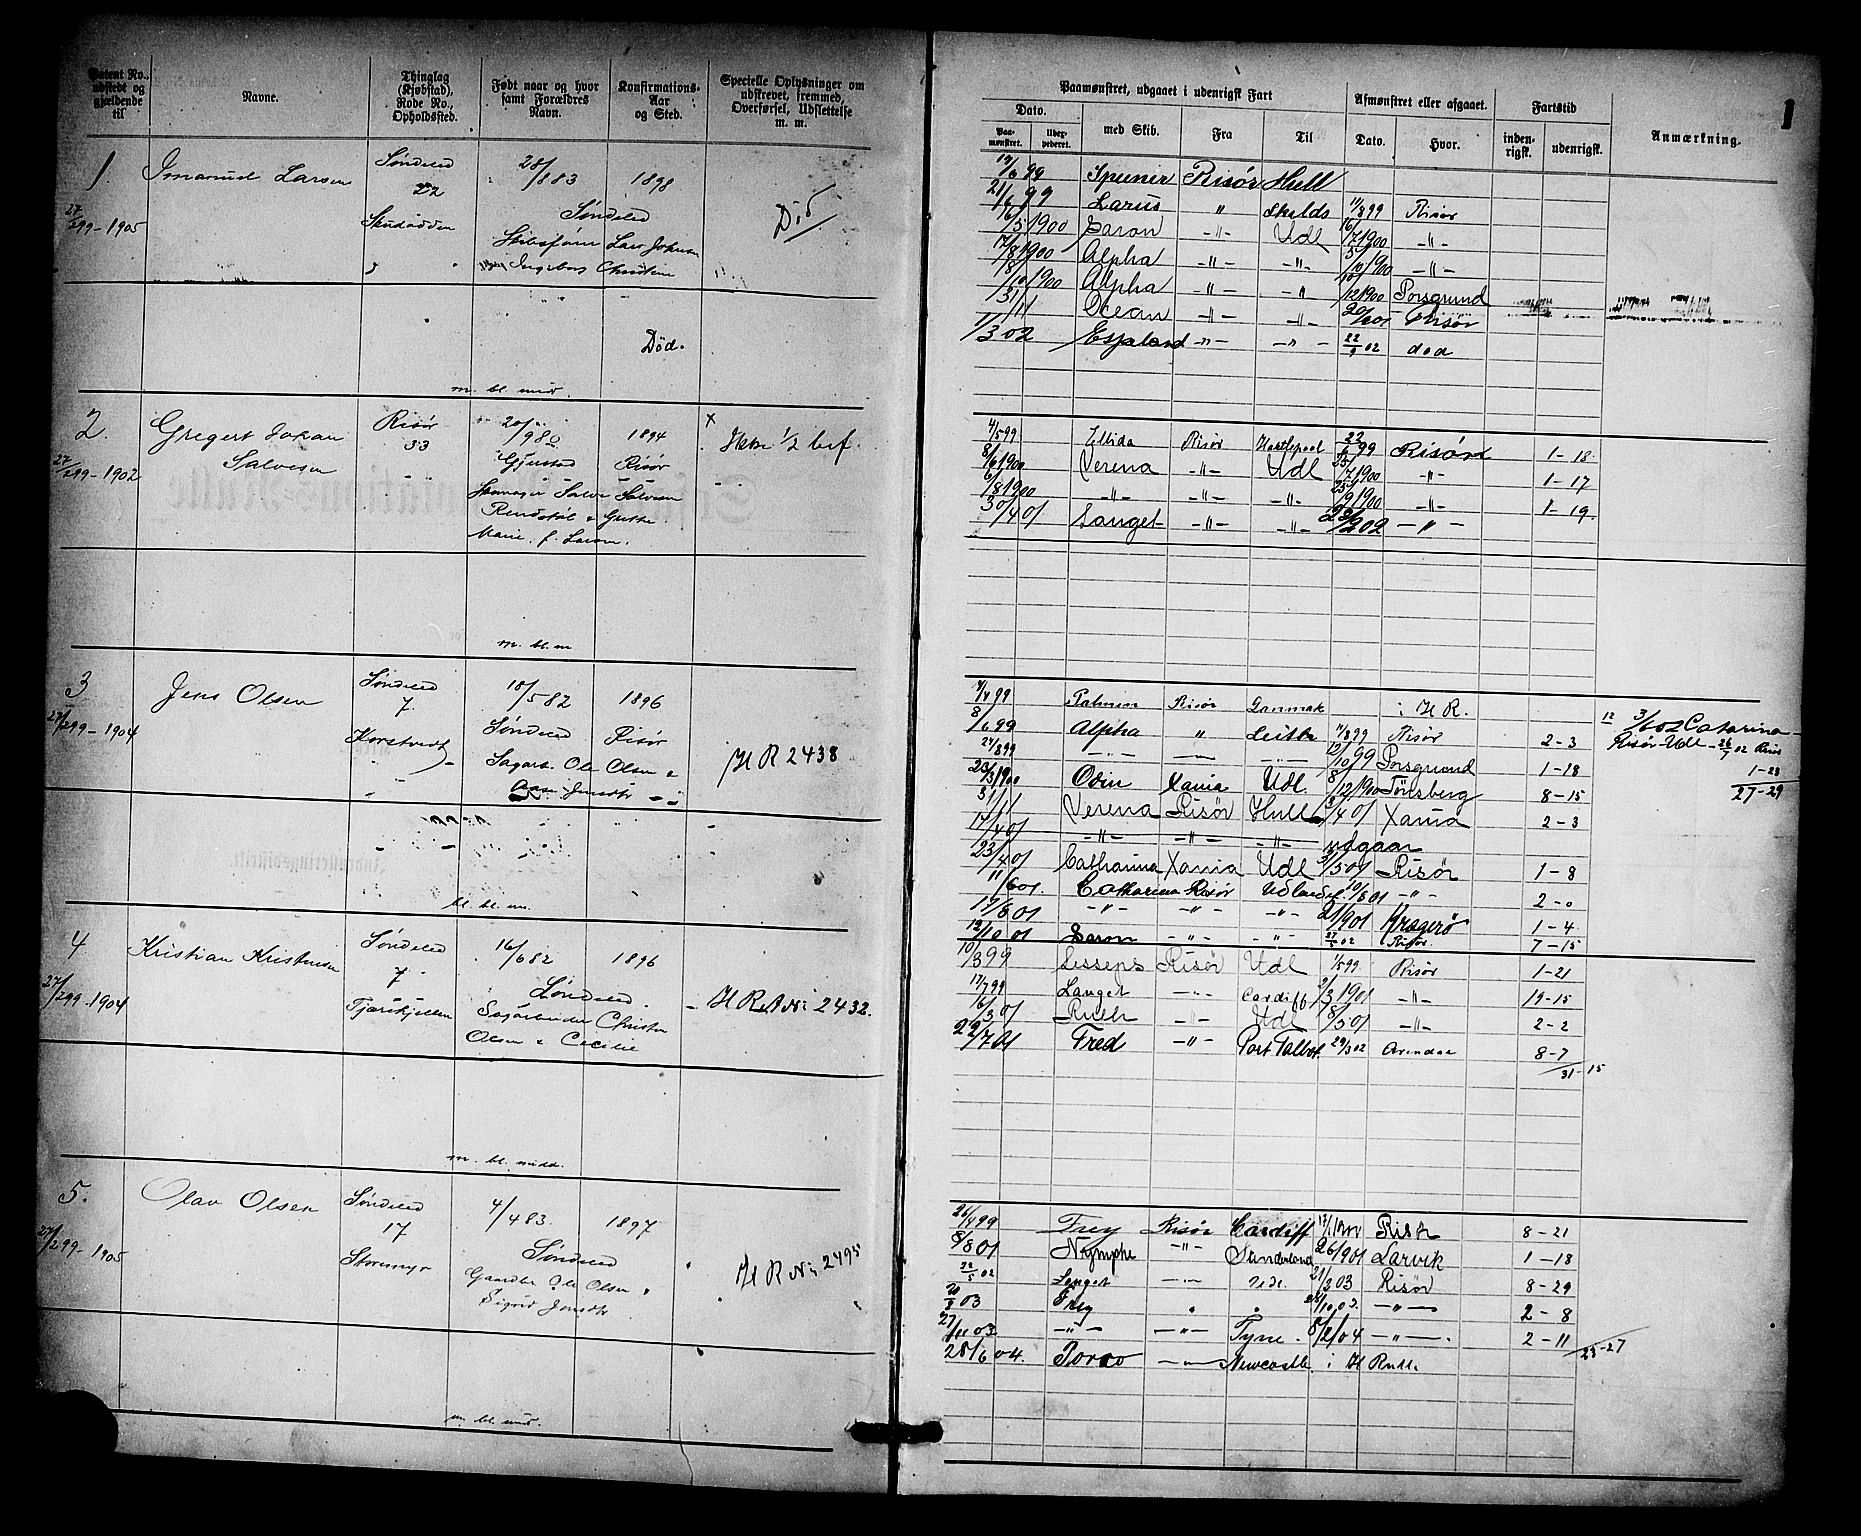 Patent No., udstedt og gjældende til
Navne.
Thinglag (Kjøbstad), Rode No., Opholdssted.
Født naar og hvor samt Forældres Navn.
Konfirmations-Aar og Sted.
Specielle Oplysninger om udskrevet, fremmed, Overførsel, Udslettelse m. m.
Paamønstret, udgaaet i udenrigsk Fart
Afmønstret eller afgaaet.
Fartstid
Anmærkning.
1
Dato.
Paa-mønstret.
med Skib.
Fra
Til
Dato.
Hvor.
inden-rigsk.
udenrigsk.
1
27/2 99-1905
Imanuel Larsen
Søndeled
22
28/8 83
1898
Søndeled
Ingeborg
Død
Død.
m. bl. midd.
12/6 99 Risør Hull
21/6 99 Larus " Skelds 11/8 99 Risør
16/5 1900 Saron -"- Udl 16/7 1900 -"-
17/8 1900 Alpha -"- -"- -"-
Alpha -"- -"- 12 1900 Porsgrund
Ocean -"- -"- Risør
1/3 02 Espeland -"- -"- 22/9 02 død
2.
27/2 99-1902
Gregert Johan
Salvesen
Risør
33
20/9 80
Gjerstad
1894
Risør
Salve Salvesen
Marie f. Larsen.
x
m. bl. m
4/5 99 Ellida Risør Hartlepool 22/6 99 Risør 1-18
8/6 1900 Verena -"- Udl 25/7 1900 -"- 1-17
6/8 1900 -"- -"- -"- 25/9 1900 -"- 1-19
30/4 01 Langet -"- -"- 23/2 02 -"-
3
27/2 99-1904
Jens Olsen
Søndeled
7.
18/5 82
Søndeled
1896
Risør
Sagarb. Ole Olsen &
H R 2438
bl. bl. m.
4/4 99 Palmen Risør Danmark i H R.
8/6 99 Alpha " Leith 11/8 99 Risør 2-3
24/8 99 -"- -"- -"- 12/10 99 Porsgrund 1-18
23/3 1900 Odin Xania Udl. 8/12 1900 Tönsberg 8-15
31/1 Verena Risør Hull 3/4 01 Xania 2-3
17/4 01 -"- -"- -"- udgaar
23/4 01 Catharina Xania Udl 3/5 01 Risør 1-8
11/6 01 Catharina Risør Udlandet 10/8 01 -"- 2-0
17/8 01 -"- -"- -"- 21/9 01 Kragerö 1-4
12/10 01 Saron -"- -"- 27/5 02 Risør. 7-15
12 3/6 02 Catarina
Risør-Udl-26/7 02 Risør
1-23
27-29
4
27/2 99-1904
Kristian Kristensen
Søndeled
7
Tjærekjellen
16/6 82
1896
Søndeled
Sagarbeider Christen
Olsen & Cecilie
H R A No 2432.
m. bl. midd.
10/3 99 Lesseps Risør Udl 1/5 99 Risør 1-21
17/7 99 Langet -"- Cardiff 2/3 1901 -"- 19-15
16/3 01 Ruth -"- Udl 18/5 01 -"- 2-2
22/7 01 Fred -"- Port Talbot 29/3 02 Arendal 8-7
31-15
5.
27/2 99-1905
Olav Olsen
Søndeled
17
Storemyr
4/4 83.
1897
Søndeled
Gaardbr. Ole Olsen &
Sigrid Jensdtr
H R No 2495
m. bl. mid.
26/4 99 Frey Risør Cardiff Risør 8-21
8/8 01 Nymphe -"- Sunderland 26/9 01 Larvik 1-18
22/5 02 Langet -"- Udl. 21/2 03 Risør 8-29
20/8 03 Frey " " 28/10 03. -"- 2-8
27/11 03 -"- -"- Tyne. 8/2/04 -"- 2-11
25-27
28/6 04. Porco -"- Newcastle i H Rulle